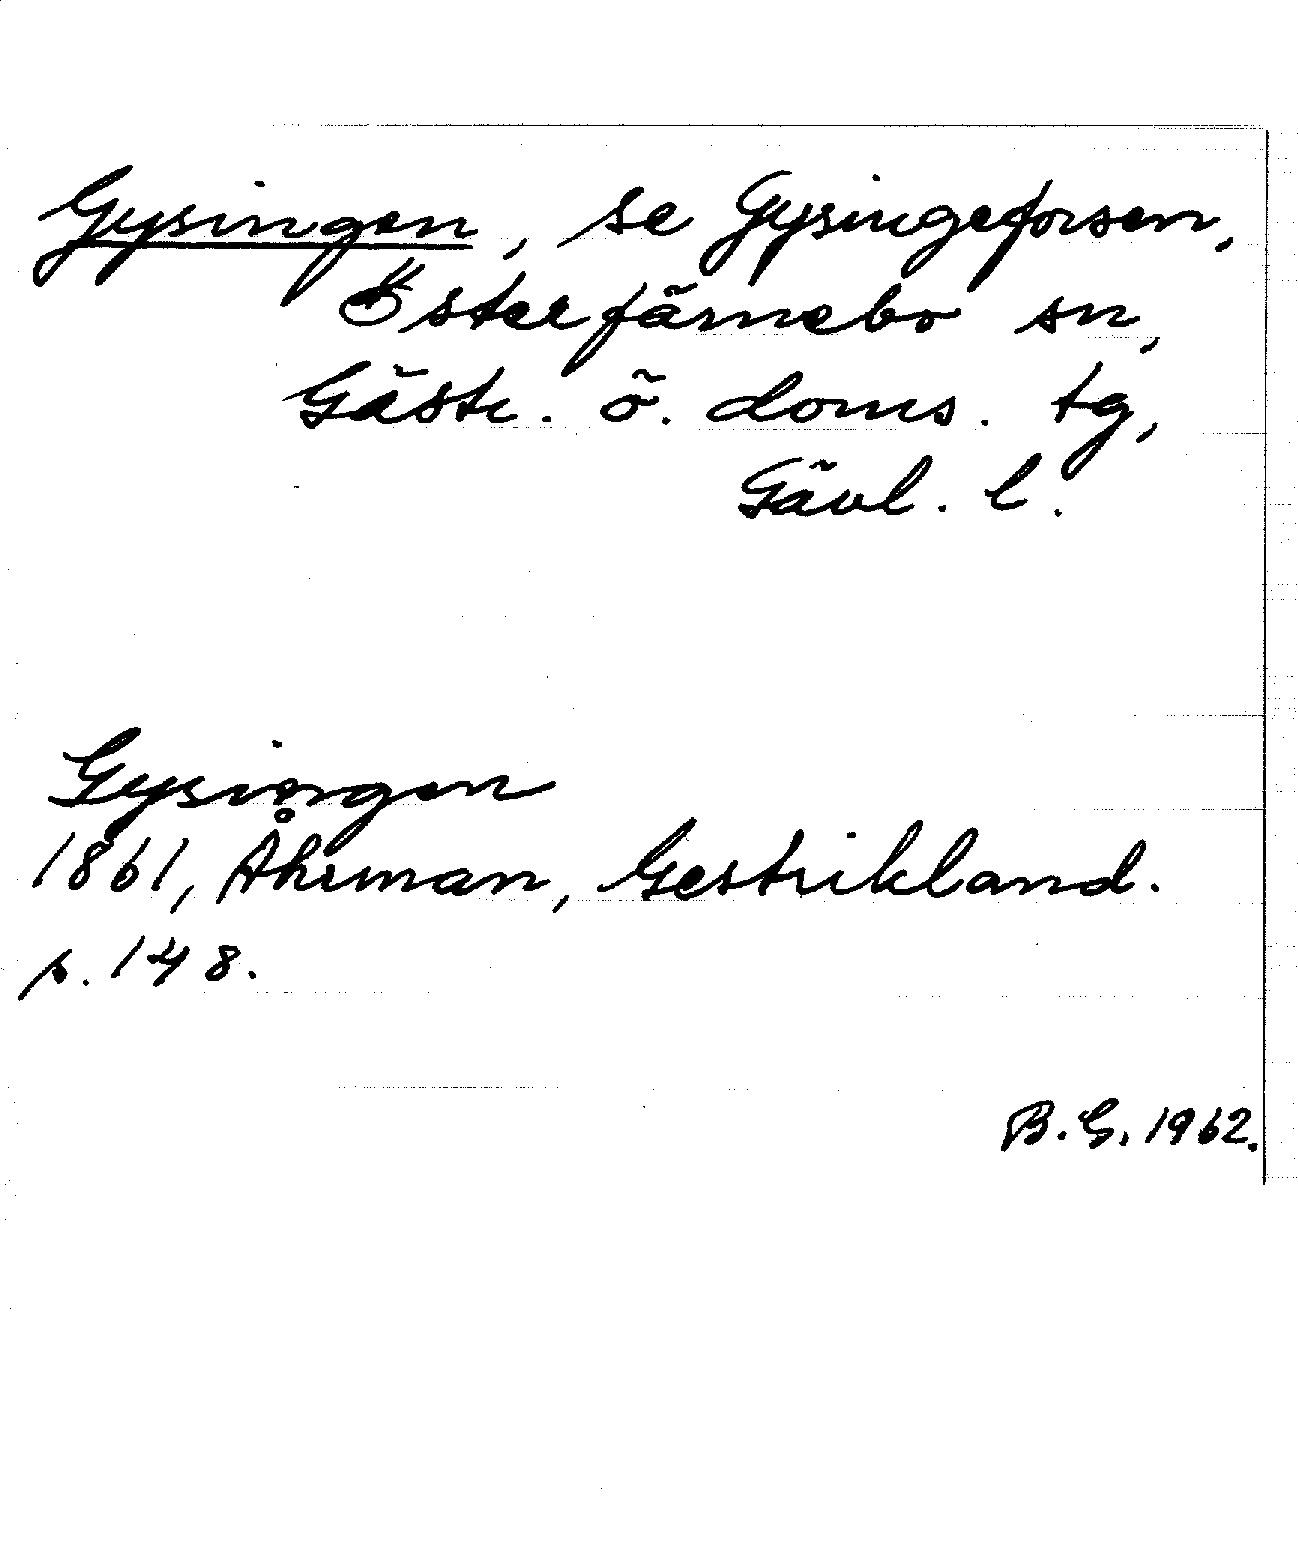 Gysingen, se Gysingeforsen,
Österfärnebo sn,
Gästr. ö. doms. tg,
Gävl. l.
Gysingen
1861, Åhrman, Gestrikland.
p. 148.
B. G. 1962.